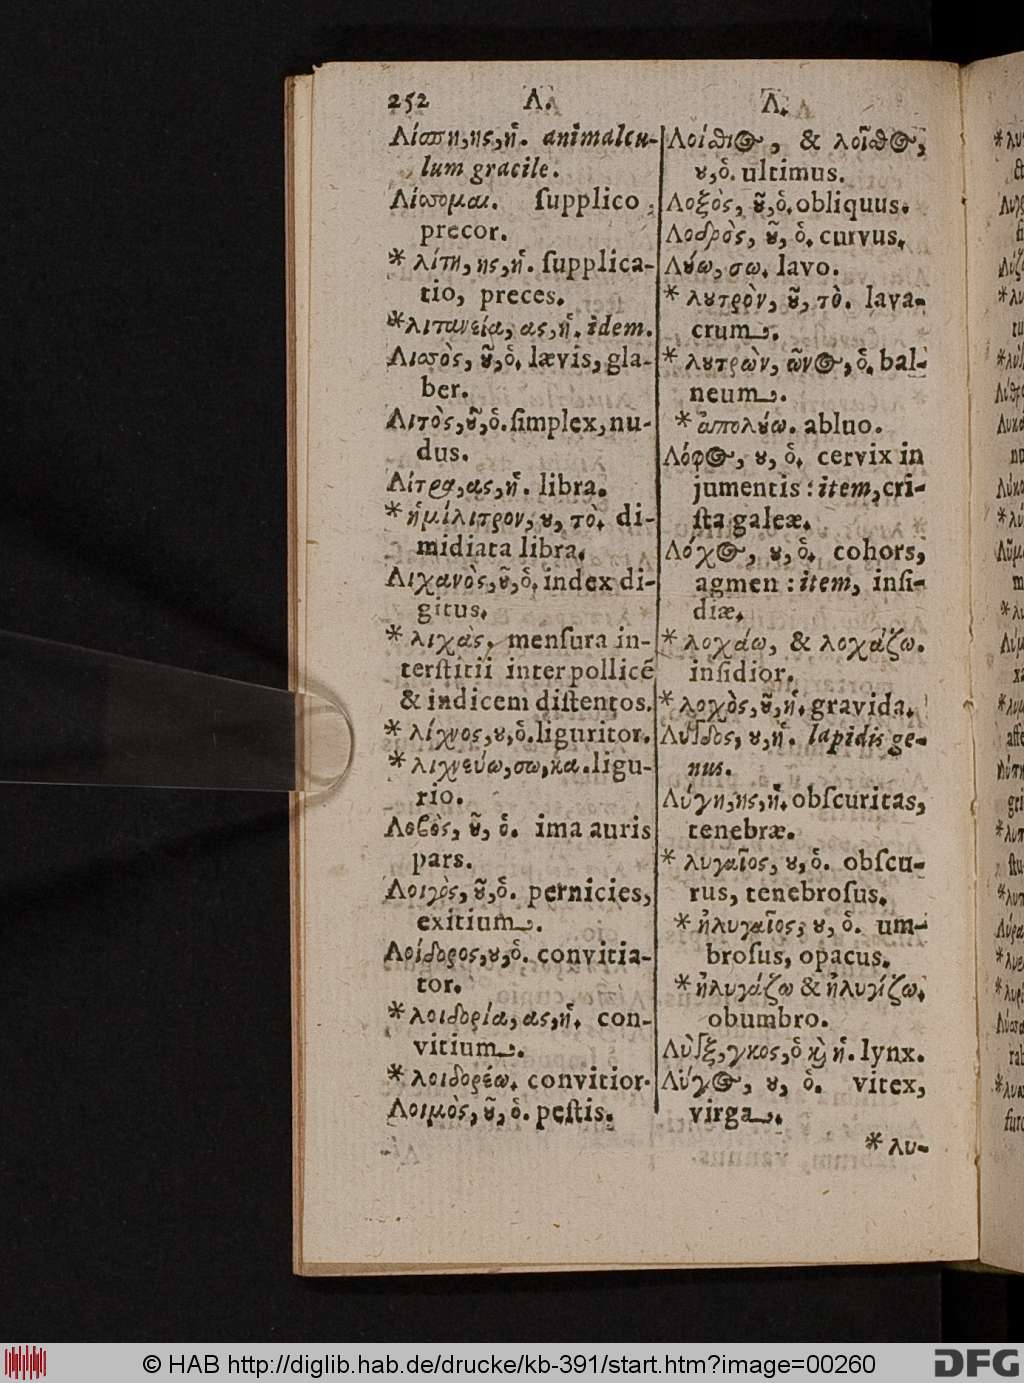 252 Λ. Λ.
Λίσπη, ης, ἡ. animalcu-
lum gracile.
Λίσσομαι. ſupplico,
precor.
* λίτη, ης, ἡ. ſupplica-
tio, preces.
* λιτανεία, ας, ἡ. idem.
Λισσὸς, ȣ͂, ὁ. lævis, gla-
ber.
Λιτὸς, ȣ͂, ὁ. ſimplex, nu-
dus.
Λίτρα, ας, ἡ. libra.
* ἡμίλιτρον, ȣ, τὸ. di-
midiata libra.
Λιχανὸς, ȣ͂, ὁ. index di-
gitus.
* λιχὰς. menſura in-
terſtitii inter pollicẽ
& indicem diſtentos.
* λίχνος, ȣ, ὁ. liguritor.
* λιχνεύω, σω, κα. ligu-
rio.
Λοβὸς, ȣ͂, ὁ. ima auris
pars.
Λοιγὸς, ȣ͂, ὁ. pernicies,
exitium.
Λοίδορος, ȣ, ὁ. convitia-
tor.
* λοιδορία, ας, ἡ. con-
vitium.
* λοιδορέω. convitior.
Λοιμὸς, ȣ͂, ὁ. peſtis.
Λοίσθιος, & λοῖσθος,
ȣ, ὁ. ultimus.
Λοξὸς, ȣ͂, ὁ. obliquus.
Λοδρὸς, ȣ͂, ὁ. curvus.
Λȣ́ω, σω. lavo.
* λȣτρὸν, ȣ͂, τὸ. lava-
crum.
* λȣτρὼν, ῶνος, ὁ. bal-
neum.
* ἀπολȣ́ω. abluo.
Λόφος, ȣ, ὁ. cervix in
jumentis: item, cri-
ſta galeæ.
Λόχος, ȣ, ὁ. cohors,
agmen: item, inſi-
diæ.
* λοχάω, & λοχάζω.
inſidior.
* λοχὸς, ȣ͂, ἡ. gravida.
Λύγδος, ȣ, ἡ. lapidis ge-
nus.
Λύγη, ης, ἡ. obſcuritas,
tenebræ.
* λυγαῖος, ȣ, ὁ. obſcu-
rus, tenebroſus.
* ἠλυγαῖος, ȣ, ὁ. um-
broſus, opacus.
* ἠλυγάζω & ἠλυγίζω.
obumbro.
Λὺγξ, γκος, ὁ ϗ ἡ. lynx.
Λύγος, ȣ, ὁ. vitex,
virga.
* λυ-
© HAB http://diglib.hab.de/drucke/kb-391/start.htm?image=00260
DFG